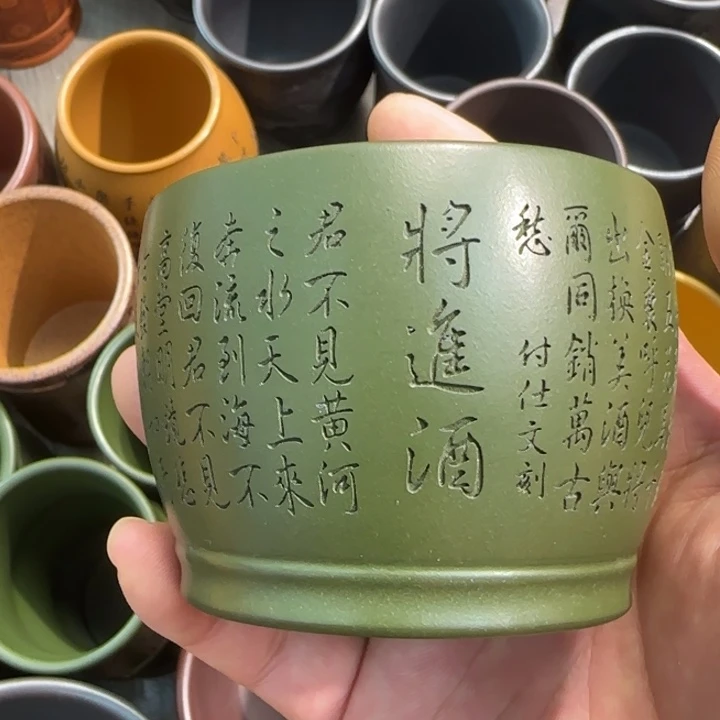 將進酒
君不見黃河
之水天上來
奔流到海不
復回君不見
高堂明鏡悲
金裘呼兒將
出換美酒與
爾同銷萬古
愁
付仕文刻